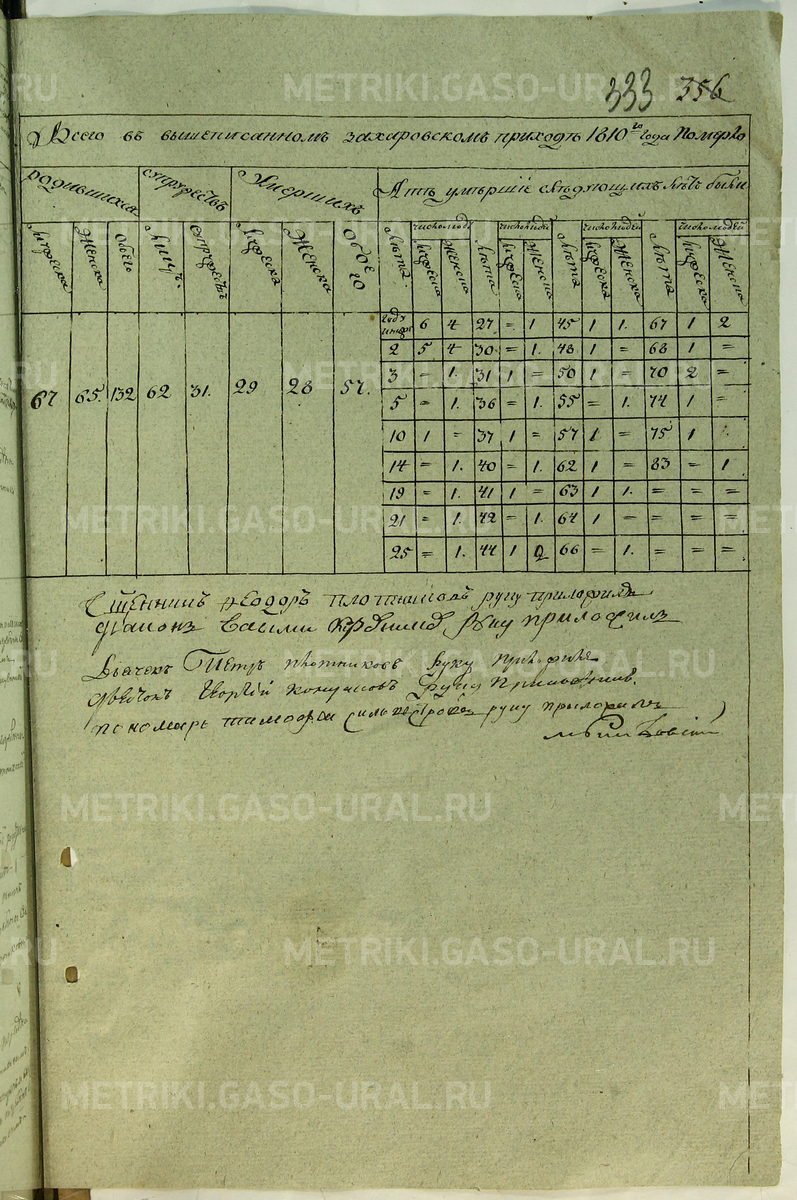 333 356
Всего въ вышеписанномъ захаровскомъ приходѣ 1810го года Померло
родившихся супружествъ Умершихъ А тѣ умершіе слѣдующихъ лѣтъ были
число людей число людей число людей число людей
Мужеска Женска Обоего Лицъ Супружествъ Мужеска Женска Обоего Лѣта Мужеска Женска Лѣта Мужеска Женска Лѣта Мужеска Женска Лѣта Мужеска Женска
году 6 4 27 = 1 45 1 1. 67 1 2
2 5 4 30 = 1. 48 1 = 68 1 =
3 = 1. 31 1 = 50 1 = 70 2 =
67 65. 132 62 31. 29 28 57.
5 = 1. 36 = 1. 55 = 1. 74 1 =
10 1 = 37 1 = 57 1 = 75 1
14 = 1. 40 = 1. 62 1 = 83 = 1
19 = 1. 41 1 = 63 1 1. = = =
21 = 1. 42 = 1. 64 1 = = = =
25 = 1. 44 1 66 = 1. = = =
Сщенникъ Ѳеодоръ плотниковъ руку приложилъ
диаконъ Василий руку приложилъ
Дьячекъ Петръ плотниковъ руку приложилъ
дьячокъ Георгій руку приложилъ.
пономарь тимоѳей сильвестровъ руку приложилъ
METRIKI.GASO-URAL.RU